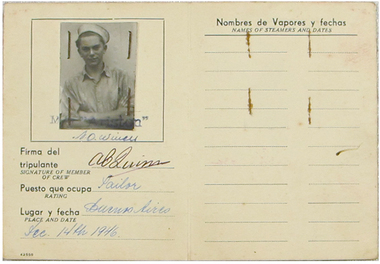 Firma del
tripulante
SIGNATURE OF MEMBER
OF CREW
Puesto que ocupa Sailor
RATING
Lugar y fecha Buenos Aires
PLACE AND DATE
Dec. 14th 1946.
Nombres de Vapores y fechas
NAMES OF STEAMERS AND DATES